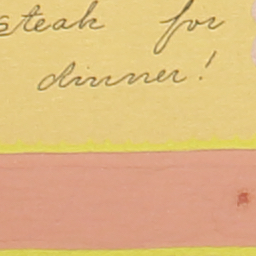 steak for
dinner!